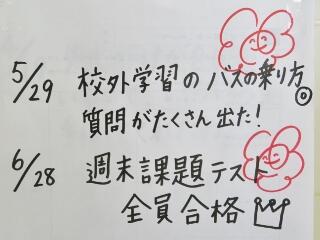 5/29 校外学習のバスの乗り方◎
質問がたくさん出た!
6/28 週末課題テスト
全員合格